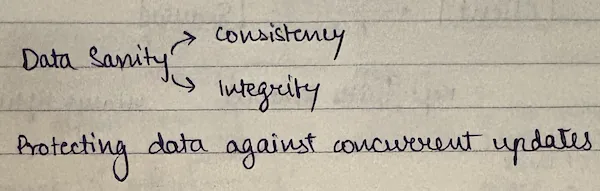 consistency
Data Sanity
Integrity
Protecting data against concurrent updates